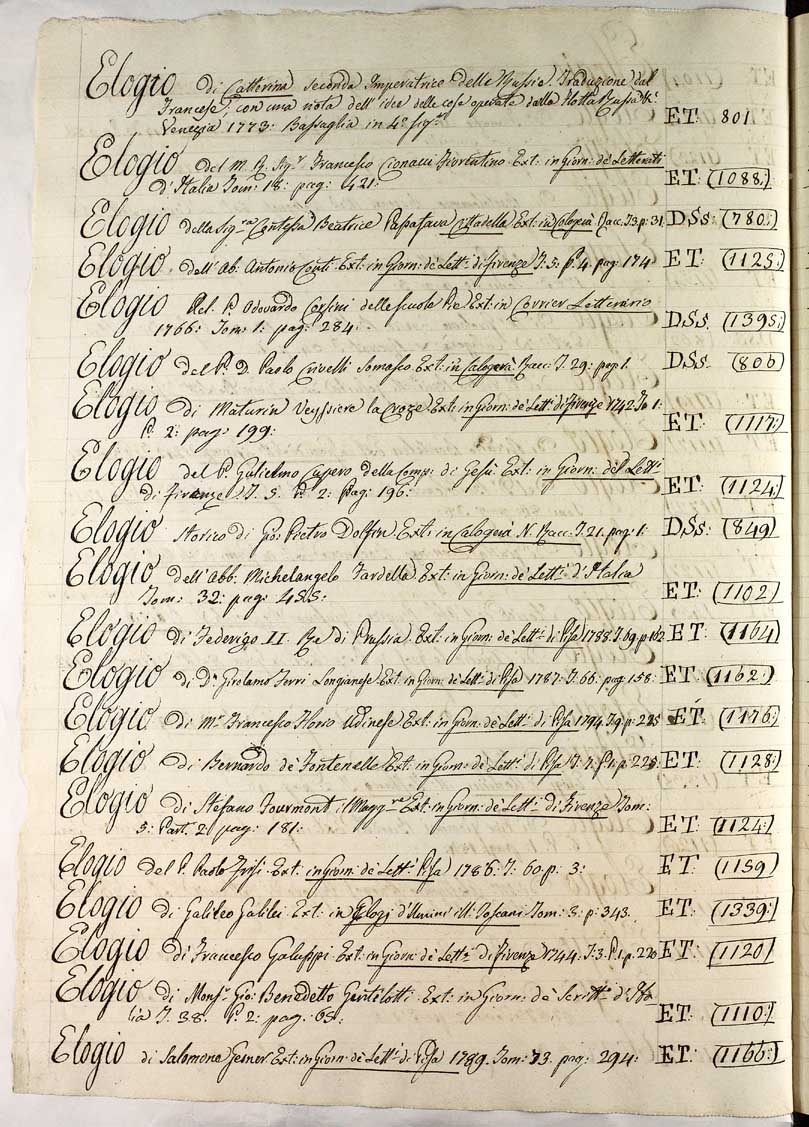 Elogio di Catterina seconda Imperatrice delle Russie. Traduzione dal
Francese, con una nota dell'idee delle cose operate dalla flotta Russa &c.
Venezia 1773: Bassaglia in 4º fig.ª ET: 801
Elogio del M. R. Sig.r Francesco Cionacci Fiorentino. Ext: in Giorn: dè Letterati
d'Italia Tom: 18: pag: 421: ET: (1088:)
Elogio della Sig.ra Contessa Beatrice Papafava Cittadella Ext: in Calogerà Racc: T.3.p: 31. DSs: (780:)
Elogio dell'Ab: Antonio Conti. Ext: in Giorn: dè Lett: di Firenze T: 5: P: 4. pag: 174. ET: (1125:)
Elogio Del P. Odoardo Corsini delle scuole Pie. Ext: in Corrier Letterario
1766: Tom: 1: pag: 284: DSs. (1395:)
Elogio del P. D. Paolo Crivelli Somasco. Ext: in Calogerà Racc: T: 29: pag: 1. DSs: (806)
Elogio di Maturin Veyssiere la Croze. Ext: in Giorn: dè Lett: di Firenze 1742 To: 1:
P. 2: pag: 199: ET: (1117:)
Elogio del P. Gulielmo Cupero della Comp: di Gesù. Ext: in Giorn: dè Lett:
di Firenze T. 5. P. 2: Pag: 196: ET: (1124:)
Elogio storico di Gio: Pietro Dolfin. Ext: in Calogerà N. Racc: T. 21. pag: 1: DSs: (849)
Elogio dell'Abb: Michelangelo Fardella. Ext: in Giorn: dè Lett: D'Italia
Tom: 32: pag: 455: ET: (1102)
Elogio di Federigo II. Re di Prussia. Ext: in Giorn: dè Lett: di Pisa 1788. T. 69. p: 162 ET: (1164)
Elogio di D.n Girolamo Ferri Longianese. Ext: in Giorn: dè Lett: di Pisa 1787: T. 66: pag: 158: ET: (1162:)
Elogio di M.r Francesco Florio Udinese. Ext: in Giorn: dè Lett: di Pisa 1794. p: 225 ET: (1176:)
Elogio di Bernardo de Fontenelle. Ext: in Giorn: dè Lett: di Pisa T. 7: P. 1. p: 225: ET: (1128:)
Elogio di Stefano Fourmont il Magg.re Ext: in Giorn: dè Lett: di Firenze Tom:
5: Part. 2: pag: 181: ET: (1124:)
Elogio del P. Paolo Frisi. Ext: in Giorn: dè Lett: Pisa 1786: T: 60. p: 3: ET: (1159)
Elogio di Galileo Galilei Ext: in Elogj d'Uomini ill: Toscani Tom: 3: p: 343. ET: (1339:)
Elogio di Francesco Galuppi Ext: in Giorn: dè Lett: di Firenze 1744: T: 3. P. 1. p: 220 ET: (1120)
Elogio di Mons.r Gio: Benedetto Gentilotti. Ext: in Giorn: dè Scritt: d'Ita
lia T. 38. P. 2: pag: 65: ET: (1110:)
Elogio di Salomone Gesner Ext: in Giorn: dè Lett: di Pisa 1789. Tom: 73. pag: 294: ET: (1166:)